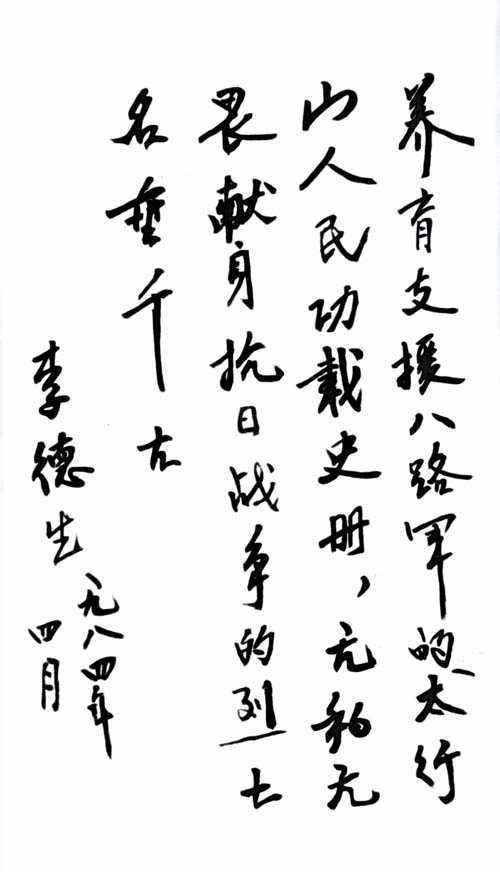 养育支援八路军的太行
山人民功载史册，无私无
畏献身抗日战争的烈士
名垂千古
李德生
一九八四年
四月